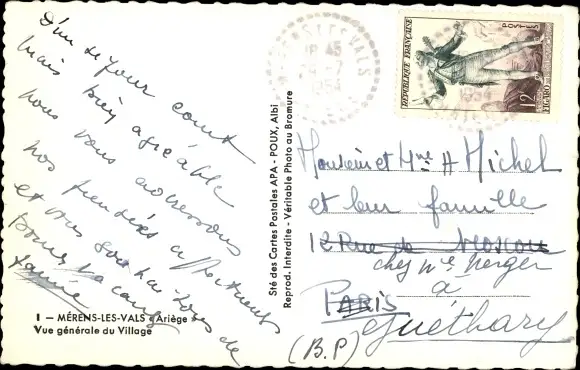 D'un séjour court
mais bien agréable
nous vous adressons
nos pensées affectueuses
et vous souhaitons de
bonnes vacances
I - MÉRENS-LES-VALS (Ariège)
Vue générale du Village
Sté des Cartes Postales APA - POUX, Albi
Reprod. Interdite - Véritable Photo au Bromure
RÉPUBLIQUE FRANÇAISE
POSTES
12F
FIGARO
1954
Monsieur et Mme H Michel
et leur famille
12 Rue de Moscou
chez Me Berger
à
PARIS
Guéthary
(B.P)